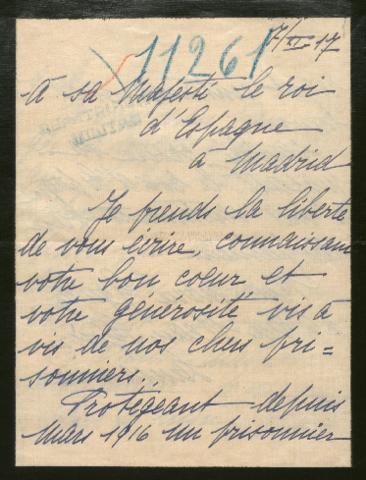 11261
17
à sa Majesté le roi
d'Espagne
à Madrid
Je prends la liberté
de vous écrire, connaissant
votre bon coeur et
votre générosité vis à
vis de nos chers pri=
sonniers...
Protégeant depuis
Mars 1916 un prisonnier